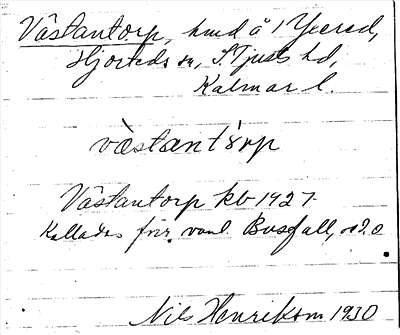 Västantorp, hmd å 1 Yxered,
Hjorteds sn, S. Tjusts hd,
Kalmar l.
västantòrp
Västantorp kb 1927.
Kallades förr vanl. Busfall,
Nils Henrikson 1930